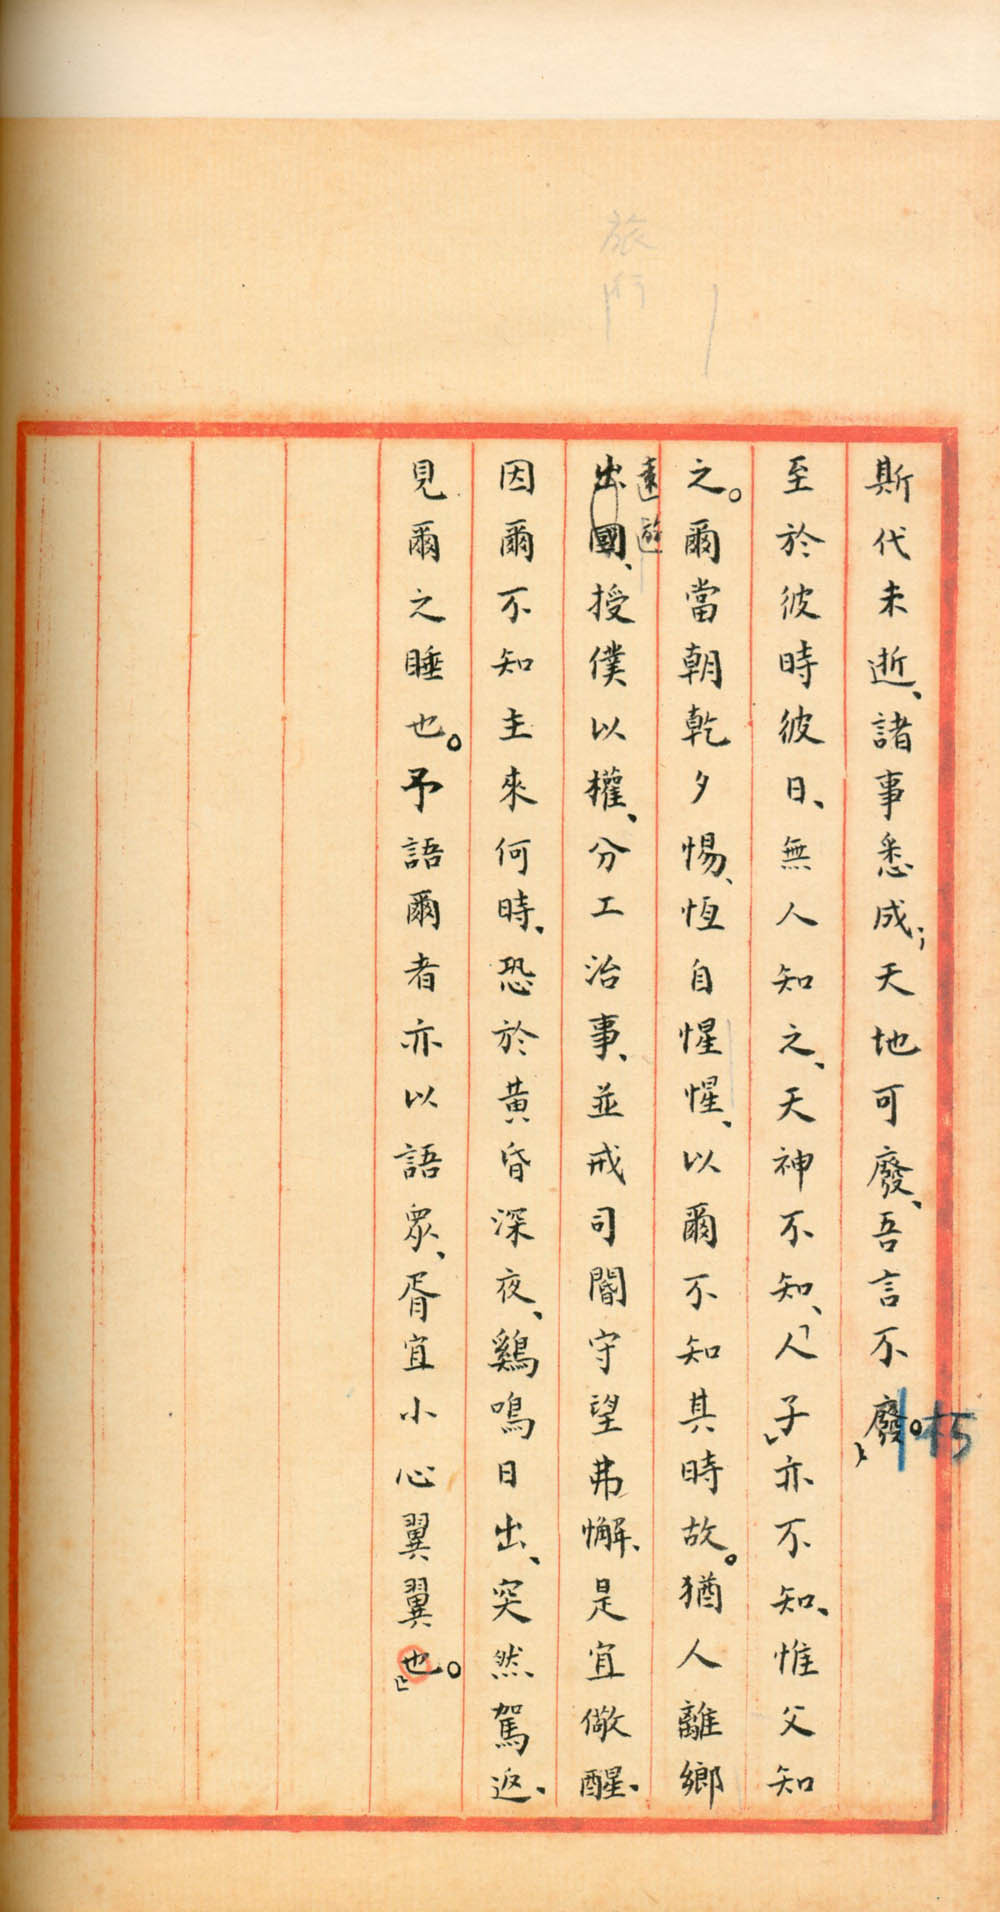 旅行
斯代未逝、諸事悉成；天地可廢、吾言不廢。」
至於彼時彼日、無人知之、天神不知、「人子」亦不知、惟父知
之。爾當朝乾夕惕、恆自惺惺、以爾不知其時故。猶人離鄉
遠遊
出國、授僕以權、分工治事、並戒司閽守望弗懈、是宜儆醒、
因爾不知主來何時、恐於黃昏深夜、鷄鳴日出、突然駕返、
見爾之睡也。予語爾者亦以語眾、胥宜小心翼翼也。」